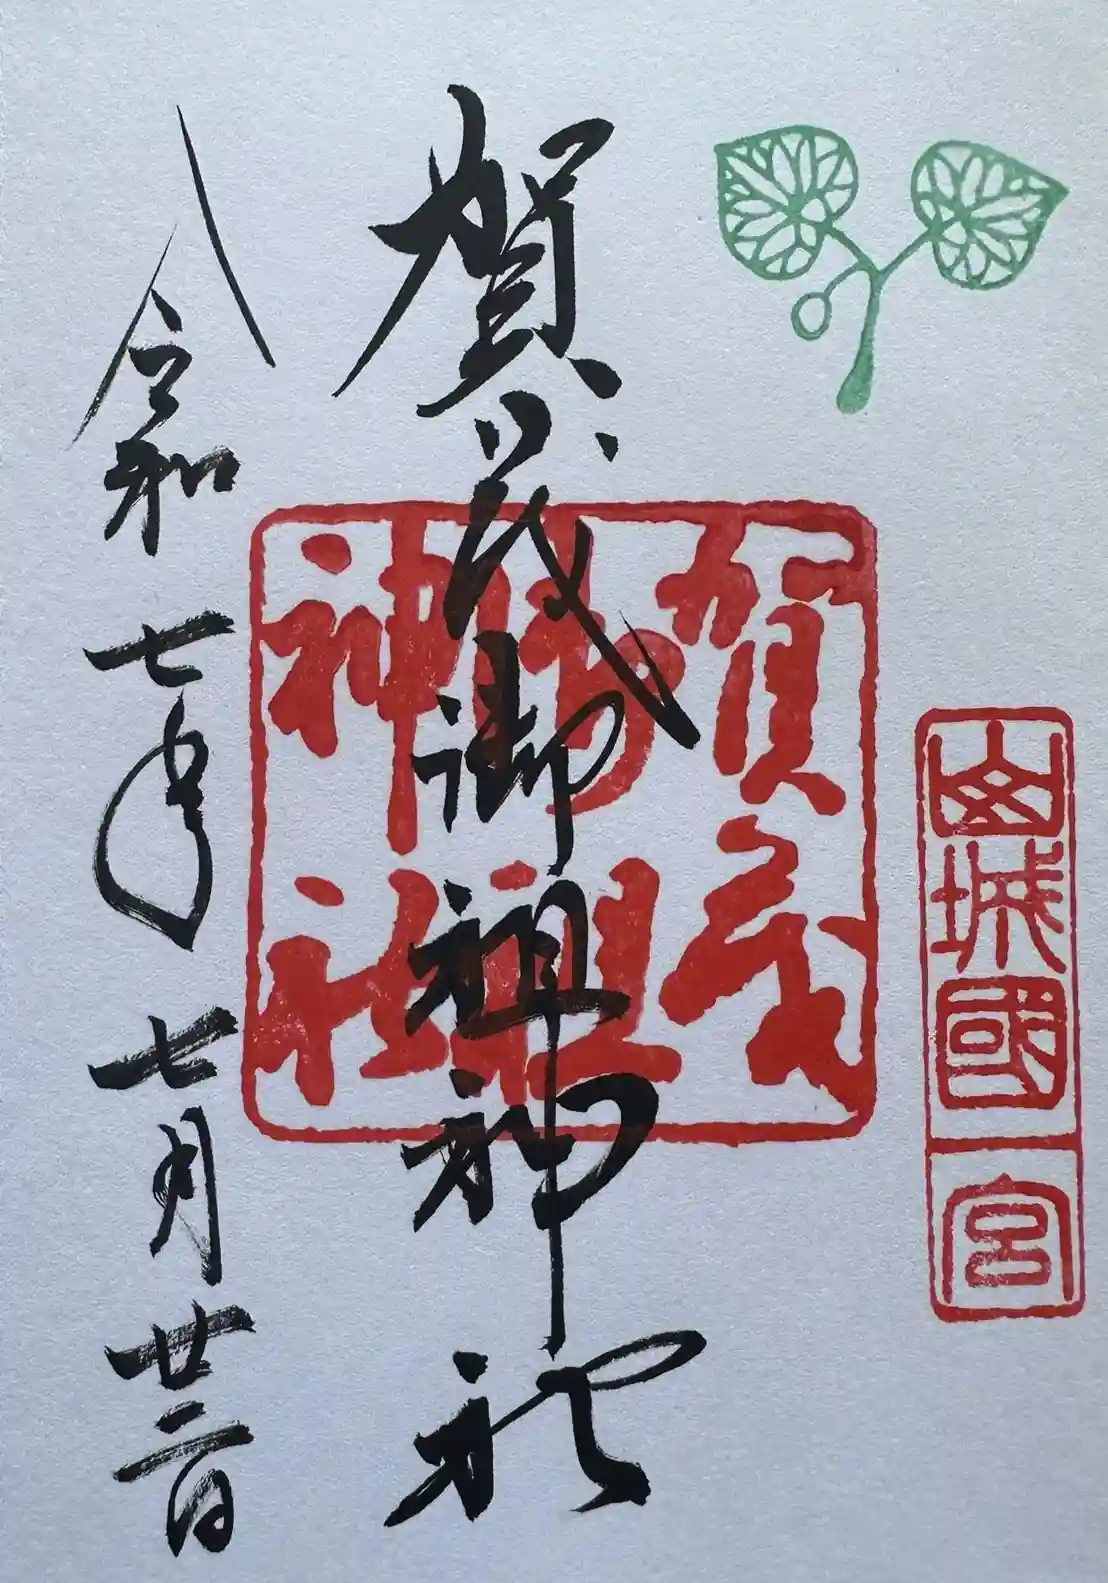 山城國一宮
賀茂御祖神社
賀茂御祖神社
令和七年七月廿二日